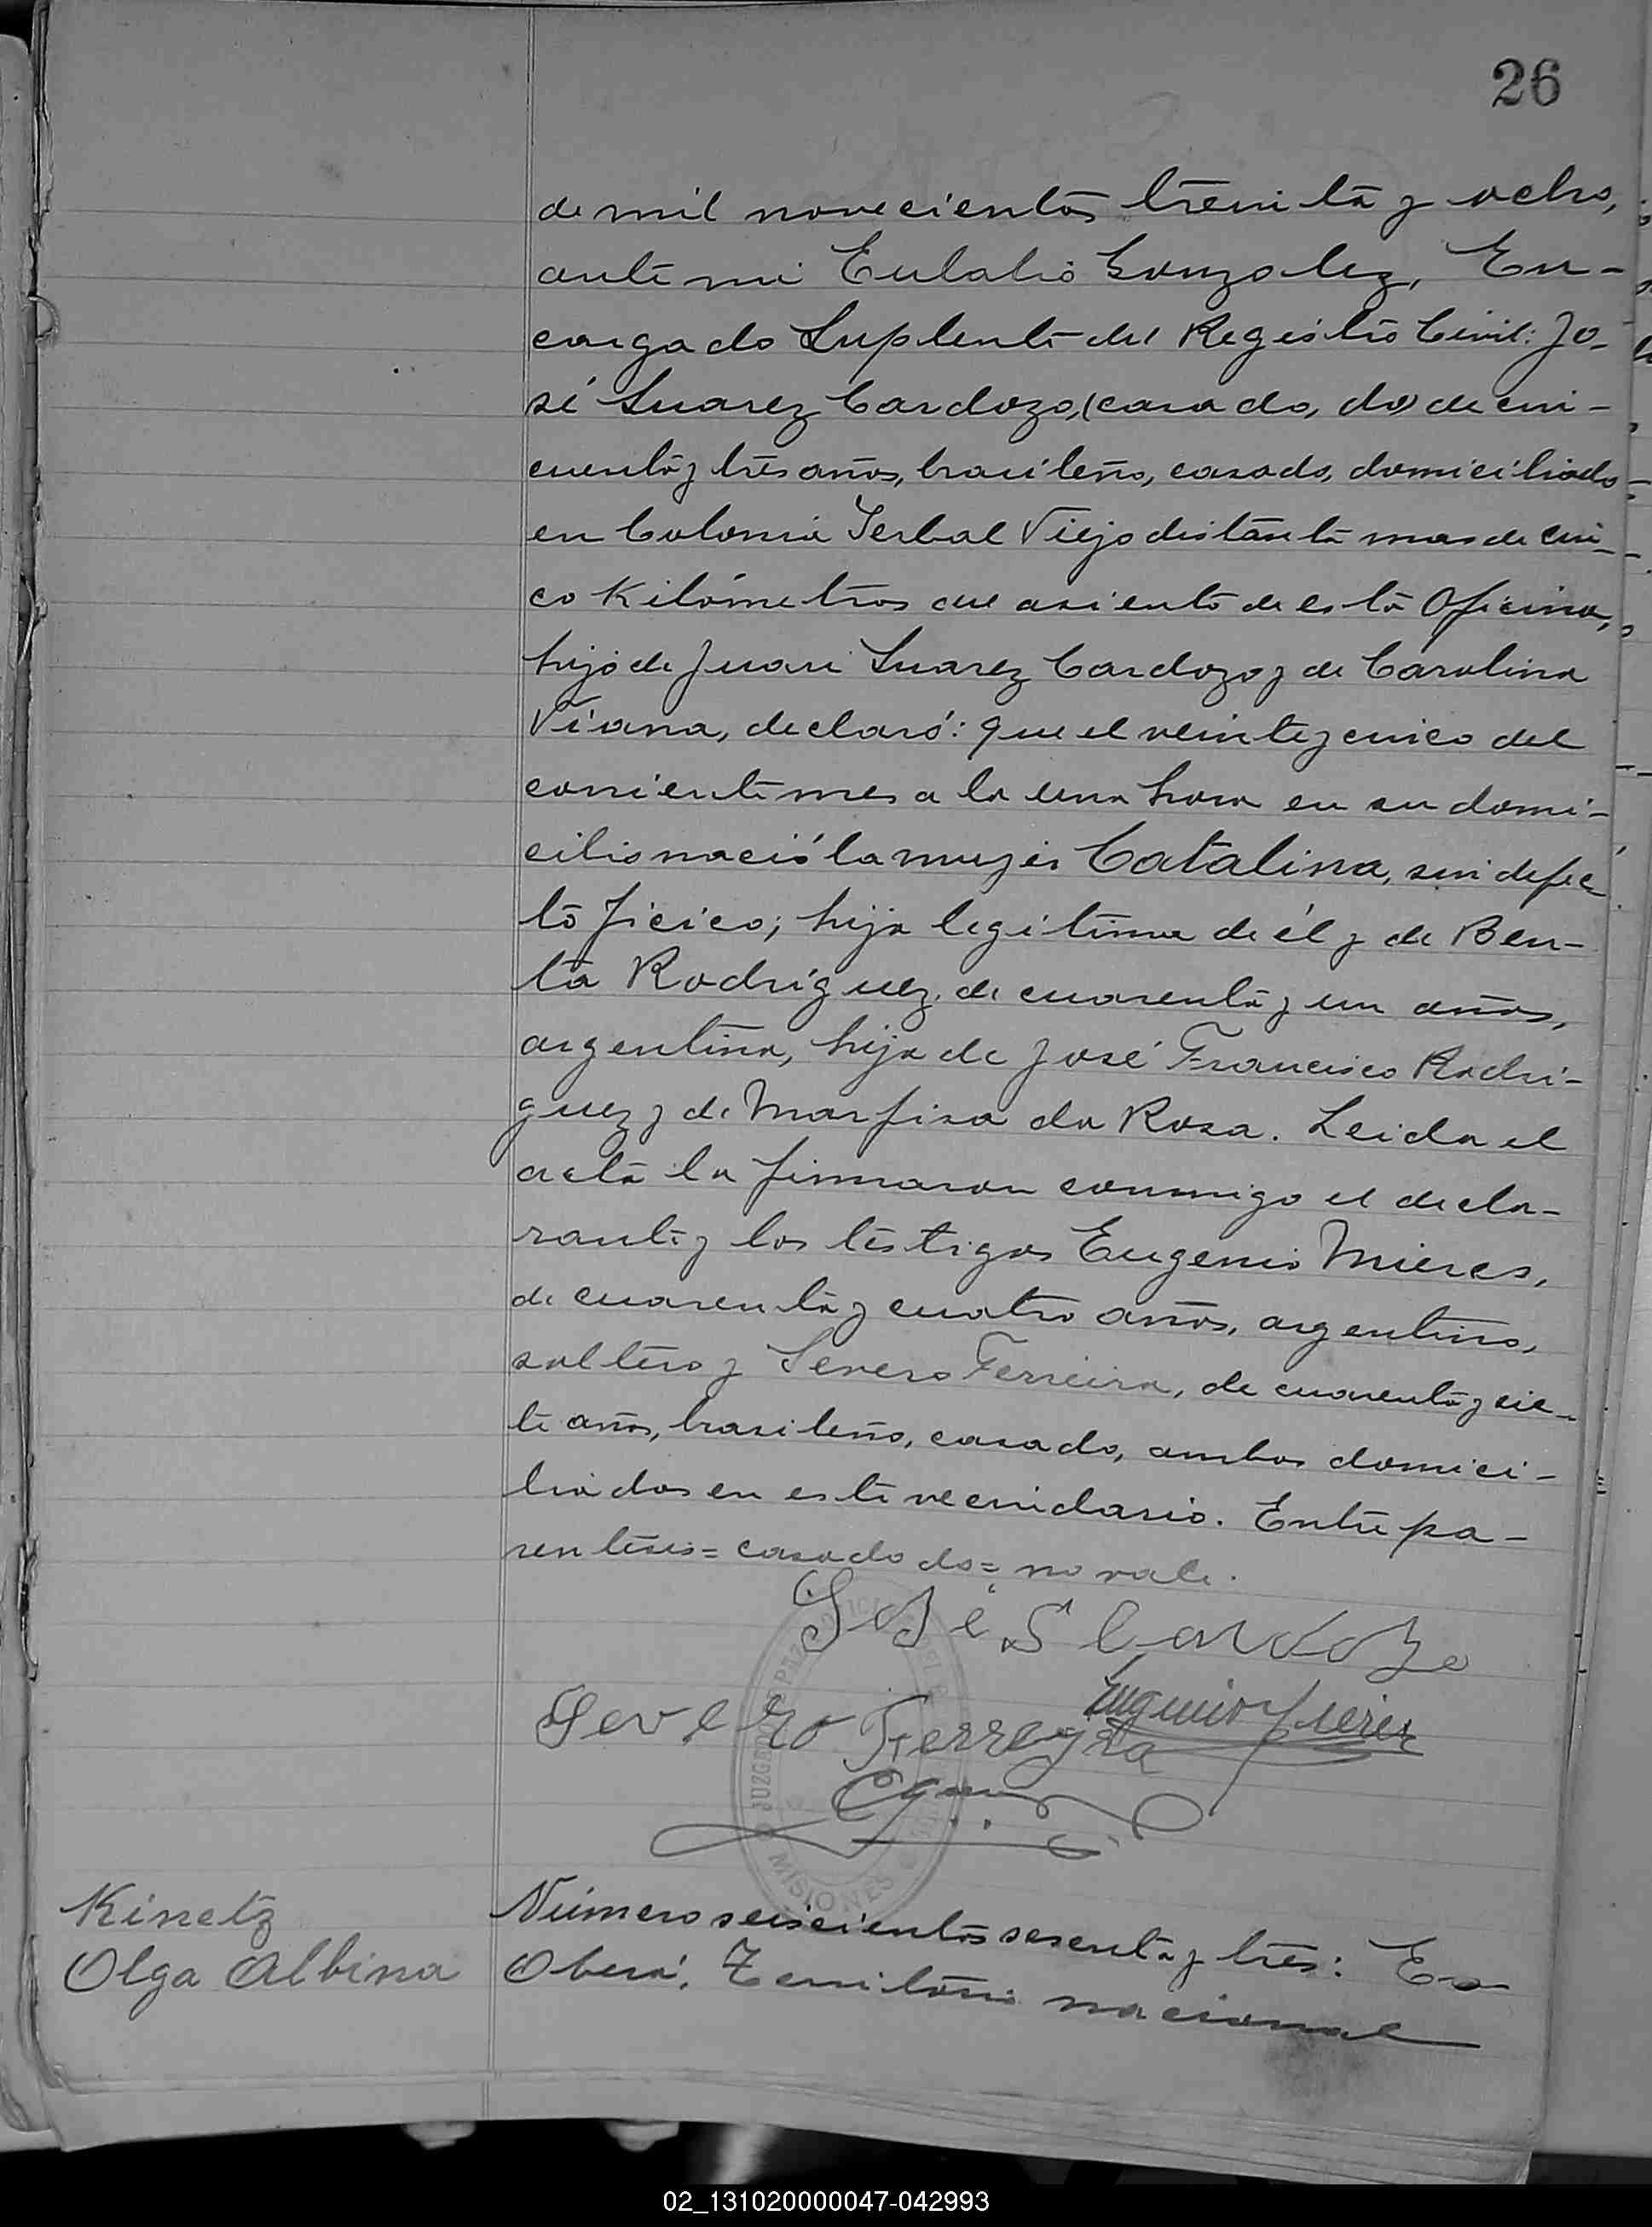 26
de mil novecientos treinta y ocho,
ante mi Eulalio Gonzalez, En-
cargado Suplente del Registro Civil: Jo-
sé Suarez Cardozo, (casado, do) de cin-
cuenta y tres años, brasileño, casado, domiciliado
en Colonia Yerbal Viejo distante mas de cin-
co Kilómetros del asiento de esta Oficina,
hijo de Juan Suarez Cardozo y de Carolina
Viana, declaró: que el veinte y cinco del
corriente mes a la una hora en su domi-
cilio nació la mujer Catalina, sin defec
to ficico; hija legitima de él y de Ben-
ta Rodriguez, de cuarenta y un años,
argentina, hija de José Francisco Rodri-
guez y de Marfisa da Rosa. Leida el
acta la firmaron conmigo el decla-
rante y los testigos Eugenio Mieres,
de cuarenta y cuatro años, argentino,
soltero y Severo Ferreira, de cuarenta y sie-
te años, brasileño, casado, ambos domici-
liados en este vecindario. Entre pa-
rentesis = casado do = no vale.
José S Cardozo
Eugenio Mieres
Severo Ferreyra
JUZGADO DE PAZ
MISIONES
Kinetz
Olga Albina
Número seiscientos sesenta y tres: En
Oberá, Territorio nacional
02_131020000047-042993